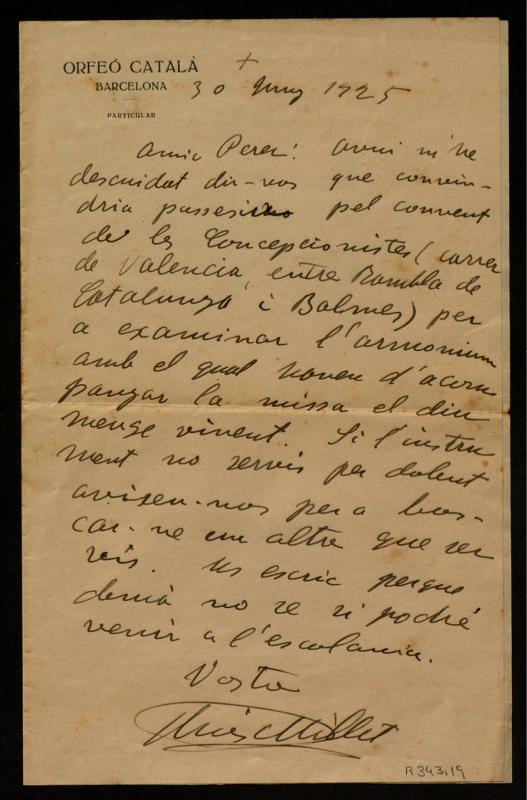 ORFEÓ CATALÀ
BARCELONA
PARTICULAR
30 Juny 1925
Amic Perer: avui m'he
descuidat dir-vos que convin-
dria passesiu pel convent
de les Concepcionistes (carrer
de Valencia, entre Rambla de
Catalunya i Balmes) per
a examinar l'armonium
amb el qual haveu d'acom
panyar la missa el diu
menge vinent. Si l'instru
ment no servis per dolent
aviseu-nos per a bus-
car-ne un altre que ser
vis. Us escric perque
demà no se si podré
venir a l'escolania.
Vostre
Lluís Millet
R343,19